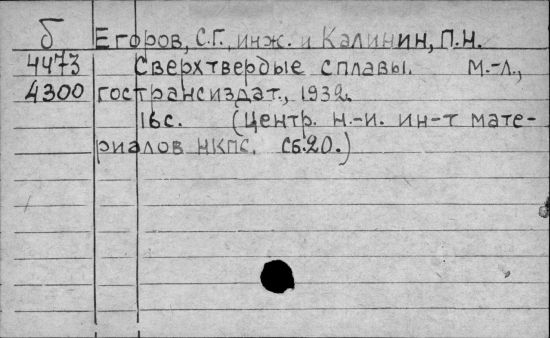 б Егоров, С.Г., инж. и Калинин, П.Н.
4473 Сверхтвердые сплавы. М.-Л.,
4300 гострансиздат., 1932.
16с. (Центр. н.-и. ин-т мате-
риалов НКПС. Сб.20.)